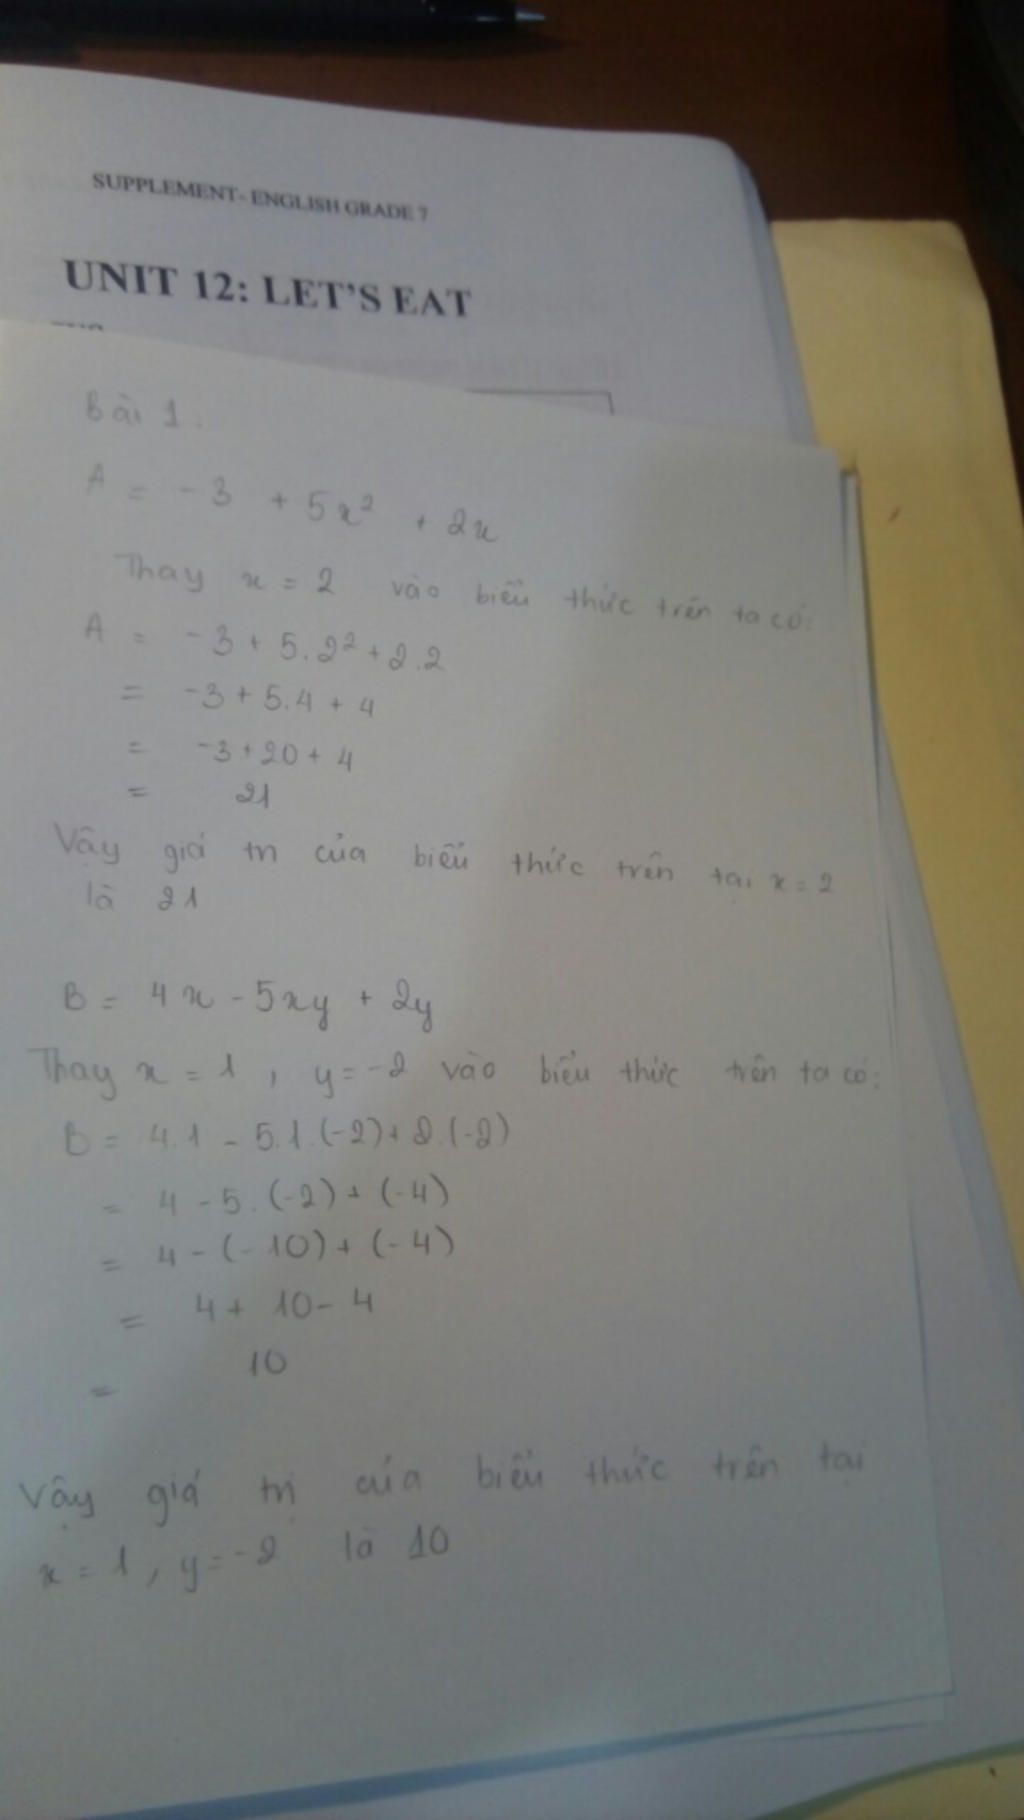 SUPPLEMENT- ENGLISH GRADE 7
UNIT 12: LET'S EAT
Bài 1.
A = -3 + 5x² + 2x
Thay x = 2 vào biểu thức trên ta có:
A = -3 + 5.2² + 2.2
= -3 + 5.4 + 4
= -3 + 20 + 4
= 21
Vậy giá trị của biểu thức trên tại x = 2
là 21
B = 4x - 5xy + 2y
Thay x = 1, y = -2 vào biểu thức trên ta có:
B = 4.1 - 5.1.(-2) + 2.(-2)
= 4 - 5.(-2) + (-4)
= 4 - (-10) + (-4)
= 4 + 10 - 4
= 10
Vậy giá trị của biểu thức trên tại
x = 1, y = -2 là 10